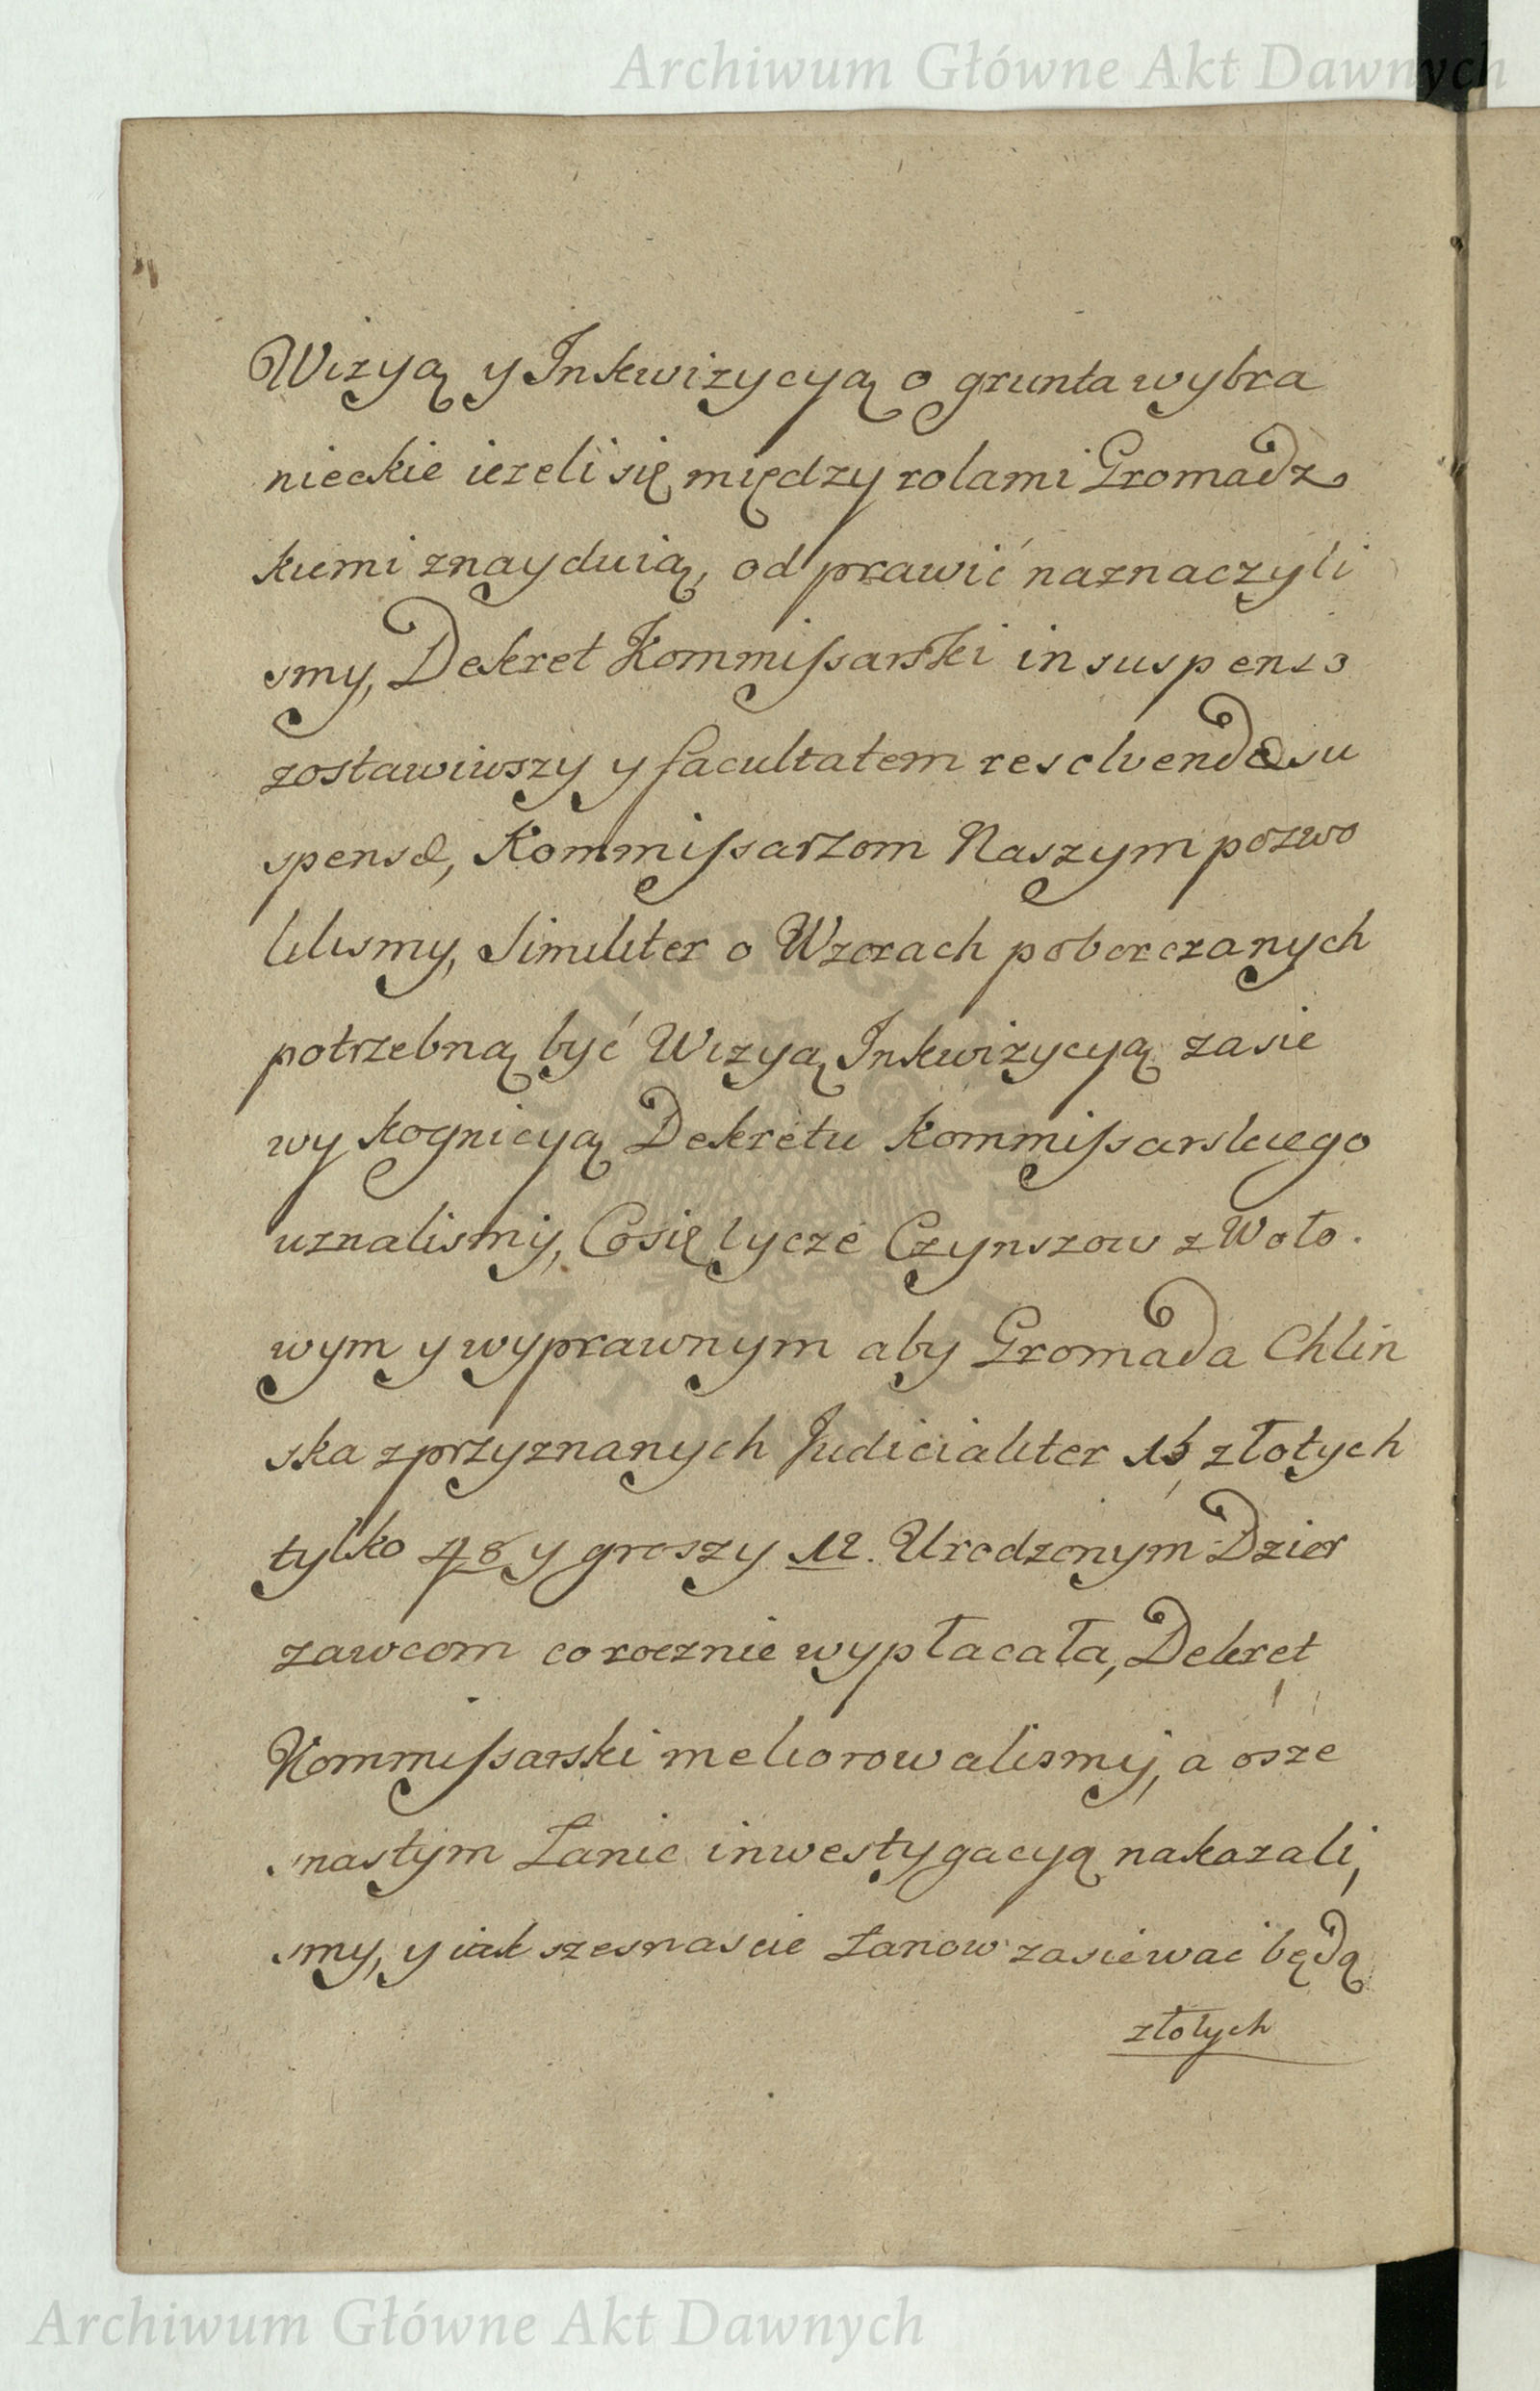 Archiwum Główne Akt Dawnych
Wizyą y Inkwizycyą o grunta wybra
nieckie iezeli się między rolami Gromadz
kiemi znayduią, od prawić naznaczyli
smy, Dekret Kommiſsarski in suspenso
zostawiwszy y facultatem resolvendo su
spenso, Kommiſsarzom Naszym pozwo
lilismy, Similiter o Wzorach poborczanych
potrzebną być Wizyą Inkwizycyą zasie
wy kognicyą Dekretu Kommiſsarskiego
uznalismy, Co się tycze Czynszow z Woło.
wym y wyprawnym aby Gromada Chlin
ska z przyznanych Judicialiter złotych
tylko 48 y groszy 12. Urodzonym Dzier
zawcom corocznie wypłacała, Dekret
Kommiſsarski meliorowalismy, a osze
snastym Łanie inwestygacyą nakazali,
smy, y iak szesnascie Łanow zasiewac będą
złotych
Archiwum Główne Akt Dawnych